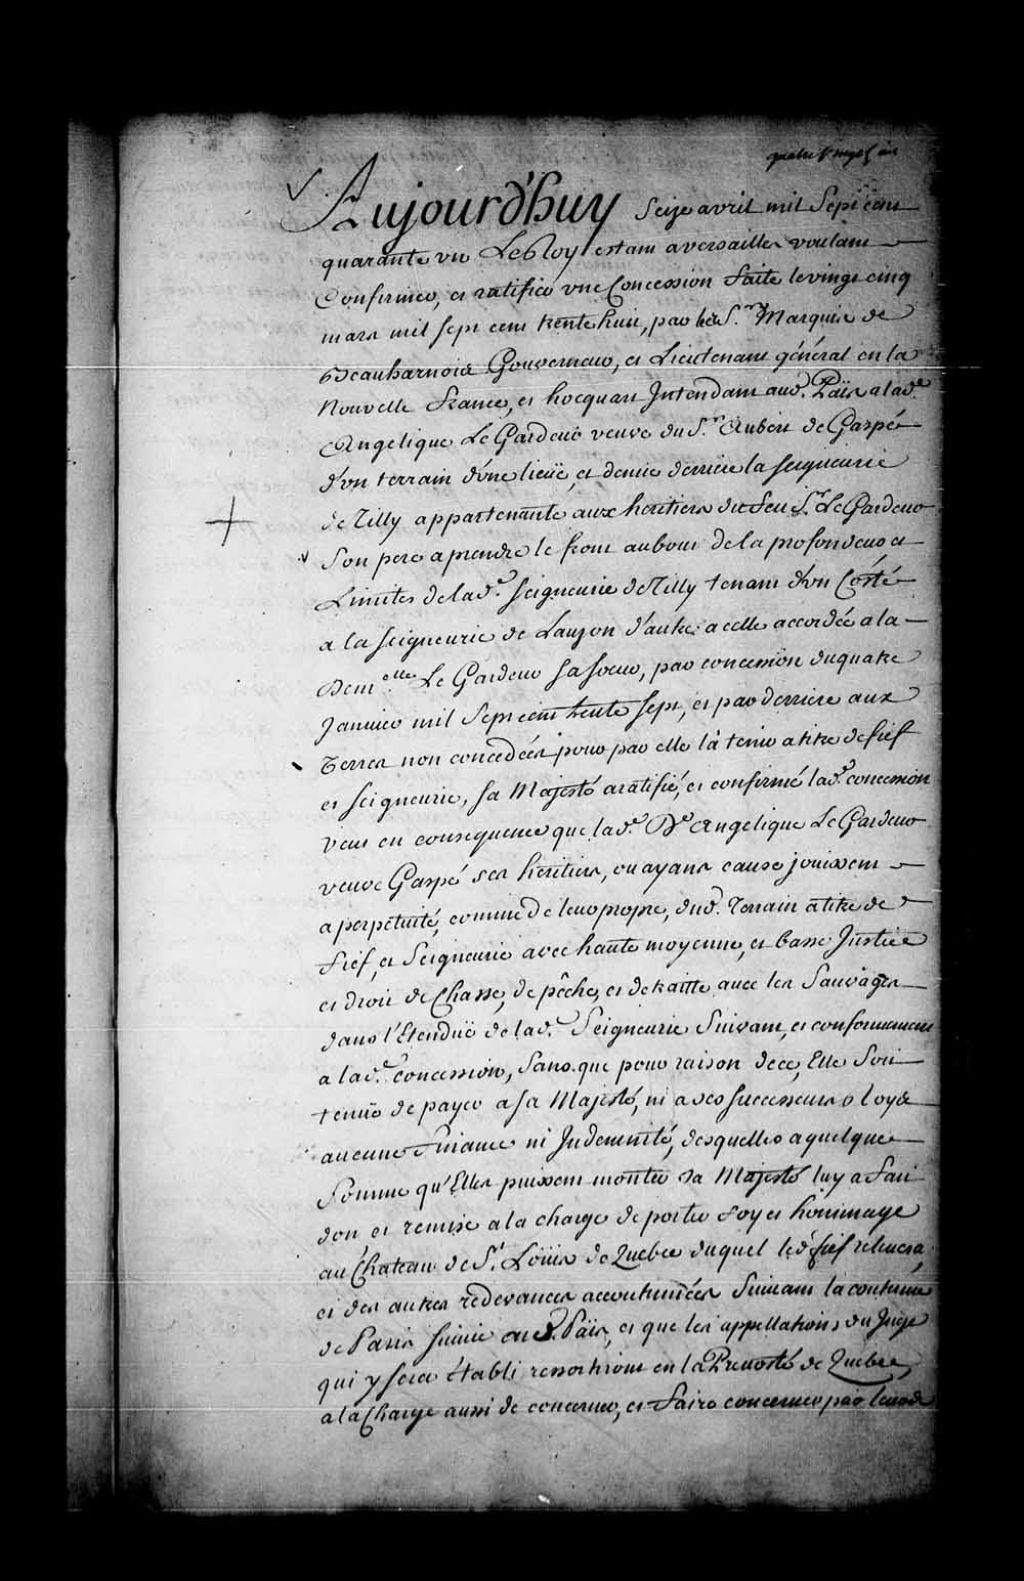 quatre vingt un
Aujourd'huy Seize avril mil Sept cent
quarante un Le Roy estant a versailles voulant
Confirmer, et ratifier une Concession faite le vingt cinq
mars mil sept cent trente huit, par les S.rs Marquis de
Beauharnois Gouverneur, et Lieutenant général en la
Nouvelle france, et hocquart Intendant aud. Païs a lad.e
Angelique Le Gardeur veuve du S.r Aubert de Gaspé
d'un terrain d'une lieüe, et demie derriere la seigneurie
de Tilly appartenante aux heritiers du feu S.r Le Gardeur
Son pere a prendre le front au bout de la profondeur et
Limites de lad.e Seigneurie de Tilly tenant d'un Costé
a la seigneurie de Lauzon d'autre a celle accordée a la
Dem.elle Le Gardeur sa soeur, par concession du quatre
Janvier mil Sept cent trente sept, et par derriere aux
Terres non concedées pour par elle la tenir a titre de fief
et seigneurie, sa Majesté a ratifié, et confirmé lad.e concession
veut en consequence que lad.e D.e Angelique Le Gardeur
veuve Gaspé ses heritiers, ou ayans cause jouissent
a perpetuité, comme de leur propre, dud. Terrain a titre de
fief, et Seigneurie avec haute moyenne, et basse Justice
et droit de Chasse, de pêche, et de traitte avec les Sauvages
dans l'Etenduë de lad.e Seigneurie Suivant, et conformement
a lad.e concession, Sans que pour raison de ce, Elle Soit
tenuë de payer a sa Majesté, ni a ses successeurs Roys
aucune finance ni Indemnité, desquelles a quelque
Somme qu'Elles puissent monter sa Majesté luy a fait
don et remise a la charge de porter foy et hommage
au Chateau de S.t Loüis de Quebec duquel led. fief relevera
et des autres redevances accoutumées Suivant la coutume
de Paris suivie aud. Païs, et que les appellations du Juge
qui y sera établi ressortiront en la Prevosté de Quebec,
a la Charge aussi de conserver, et faire conserver par